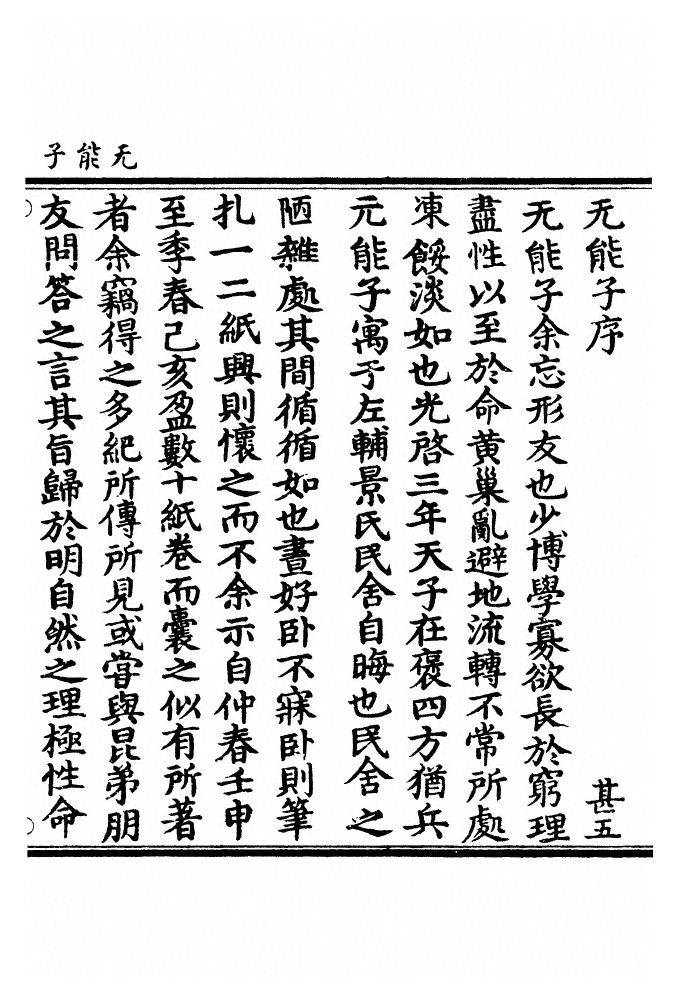 无能子
无能子序 甚五
无能子余忘形友也少博學寡欲長於窮理
盡性以至於命黄巢亂避地流轉不常所處
凍餒淡如也光啓三年天子在褒四方猶兵
元能子寓于左輔景氏民舍自晦也民舍之
陋雜處其間循循如也晝好卧不寐卧則筆
扎一二紙興則懷之而不余示自仲春壬申
至季春己亥盈數十紙卷而囊之似有所著
者余竊得之多紀所傳所見或嘗與昆弟朋
友問答之言其旨歸於明自然之理極性命